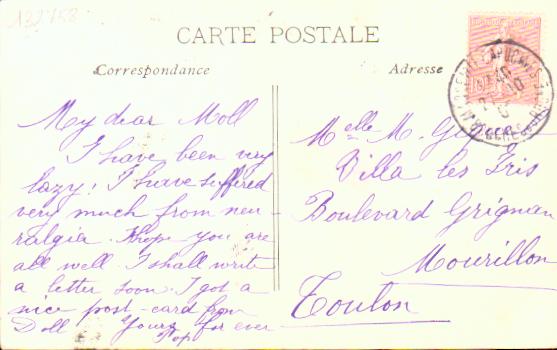 132758
CARTE POSTALE
Correspondance
Adresse
My dear Moll
I have been very
lazy! I have suffered
very much from neu-
ralgia. I hope you are
all well. I shall write
a letter soon. I got a
nice post-card from
Doll Yours for ever
Melle M.
Villa les Iris
Boulevard Grignan
Mourillon
Toulon